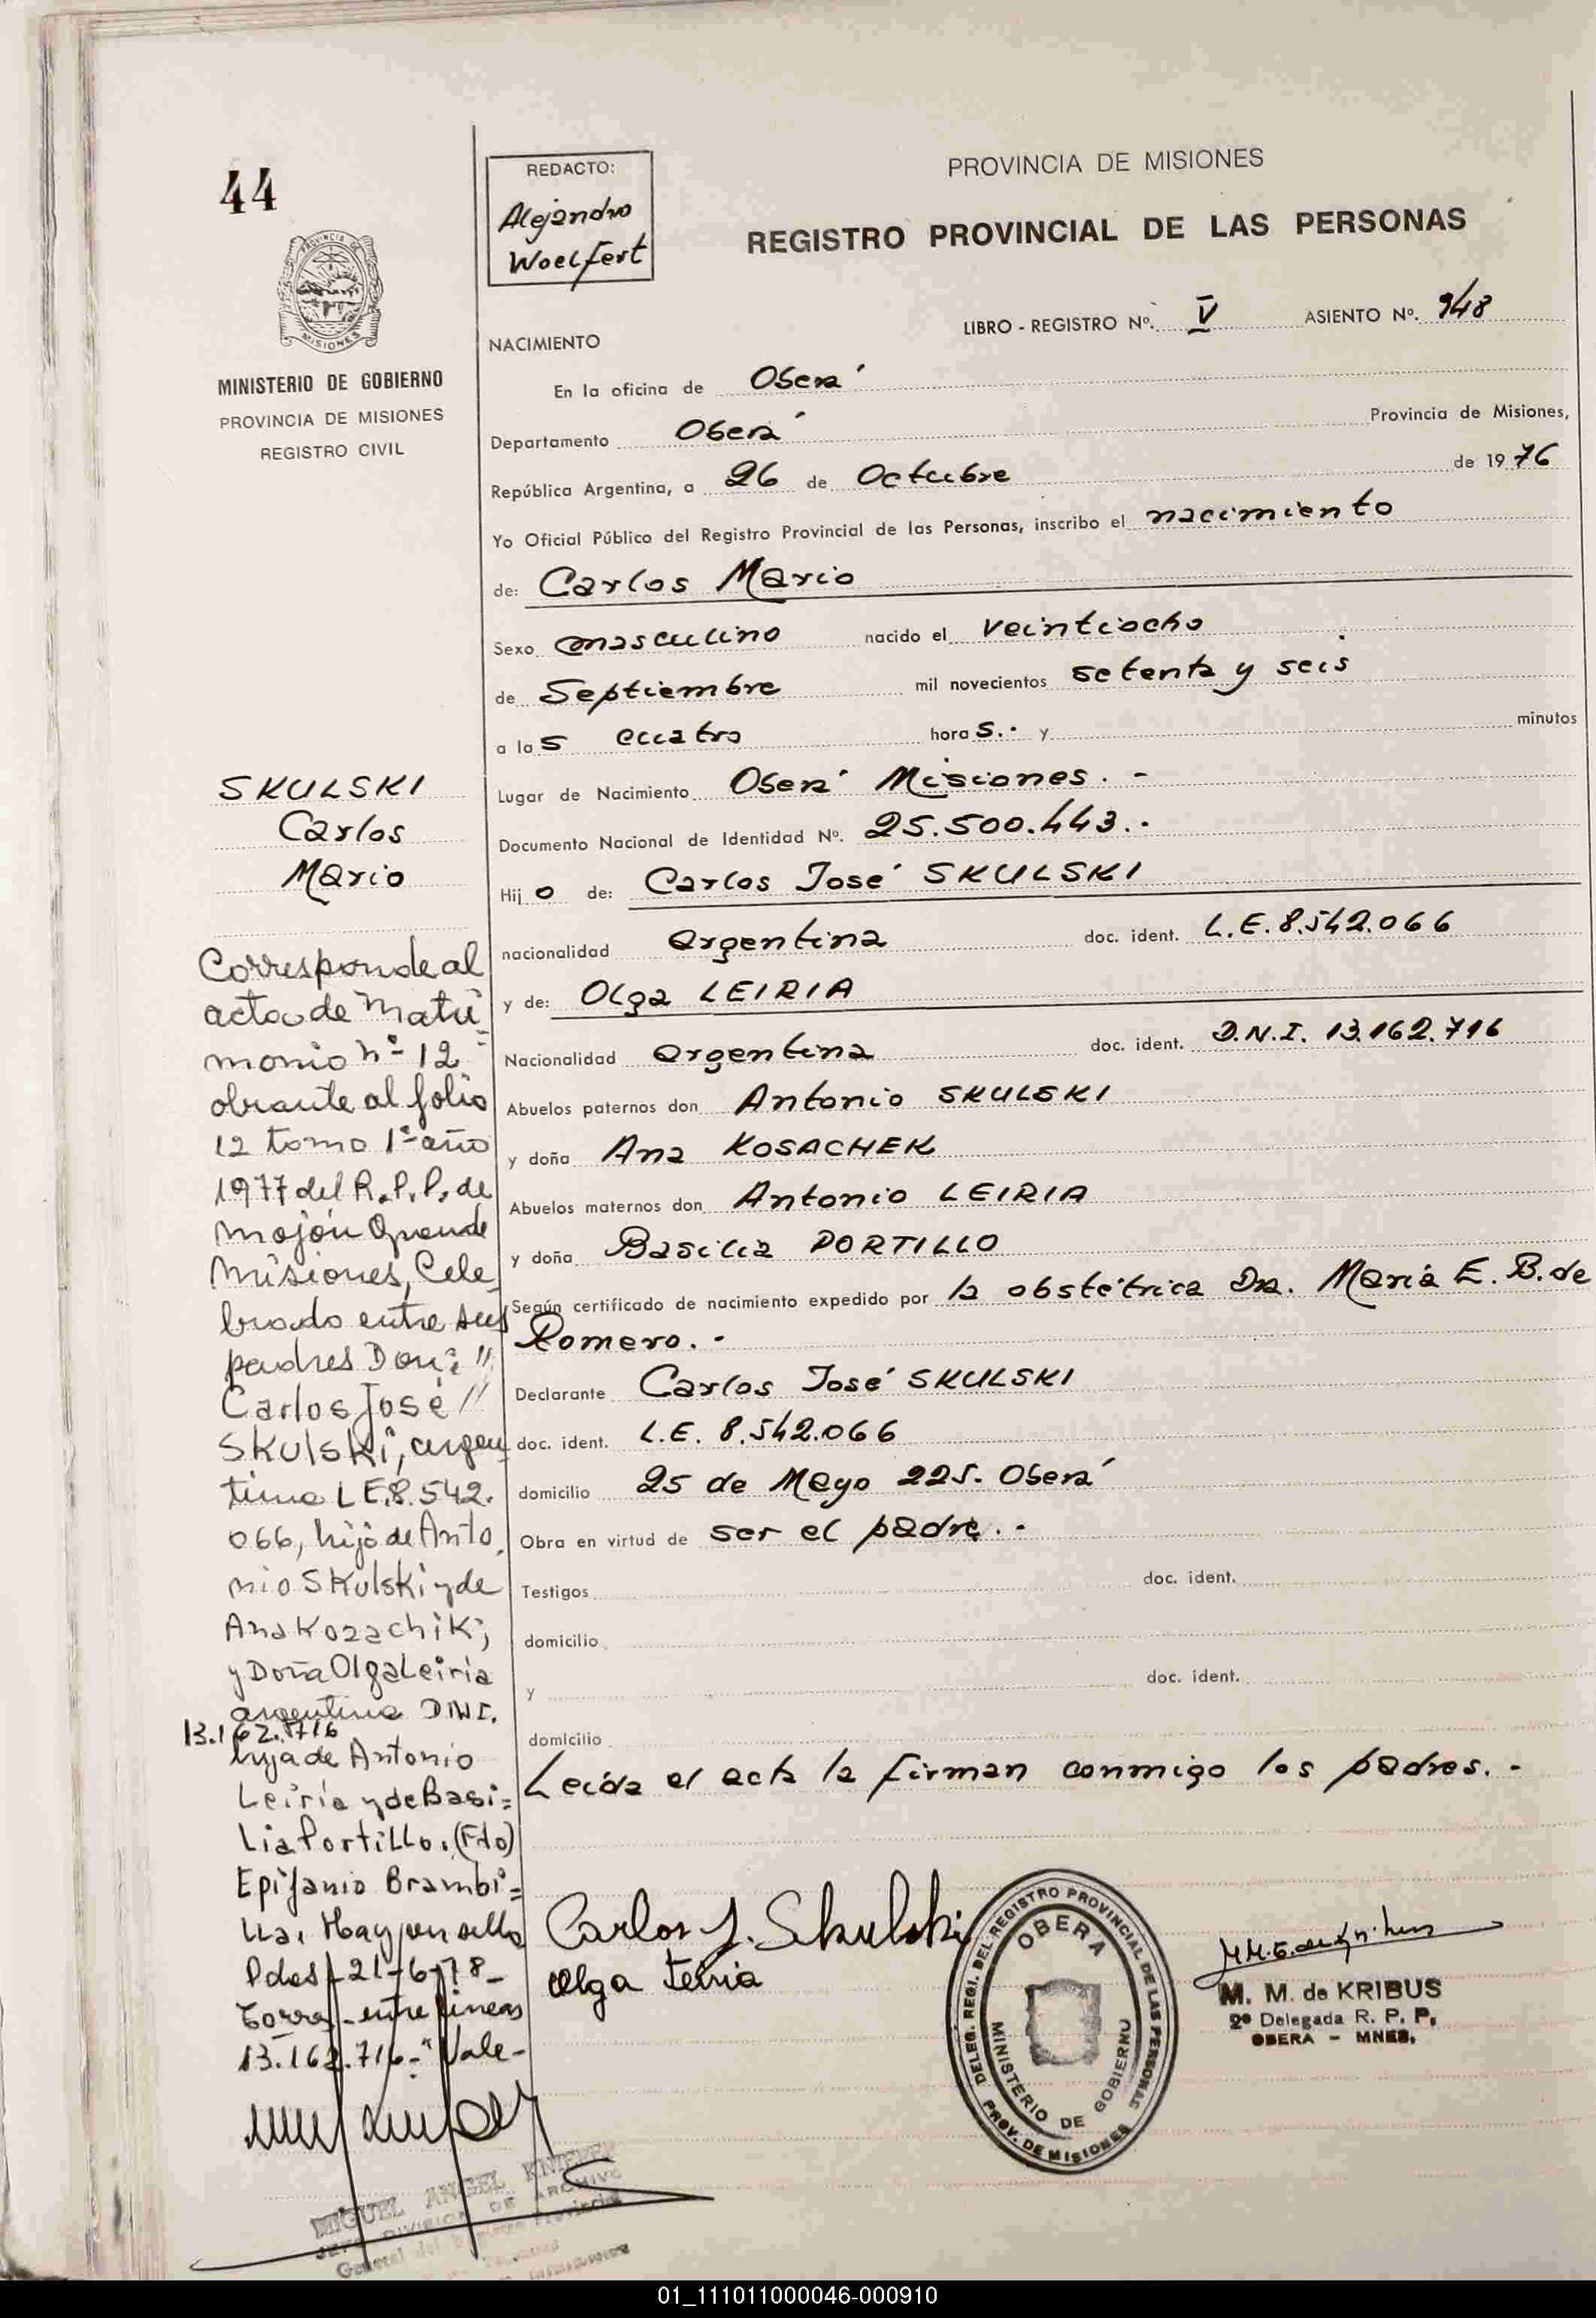 44
REDACTO:
Alejandro
Woelfert
PROVINCIA DE MISIONES
REGISTRO PROVINCIAL DE LAS PERSONAS
PROVINCIA DE
MISIONES
MINISTERIO DE GOBIERNO
PROVINCIA DE MISIONES
REGISTRO CIVIL
LIBRO - REGISTRO Nº. V ASIENTO Nº. 948
NACIMIENTO
En la oficina de Oberá
Departamento Oberá Provincia de Misiones,
República Argentina, a 26 de Octubre de 1976
Yo Oficial Público del Registro Provincial de las Personas, inscribo el nacimiento
de: Carlos Mario
Sexo masculino nacido el veintiocho
de Septiembre mil novecientos setenta y seis
a las cuatro horas.- y minutos
Lugar de Nacimiento Oberá Misiones. -
Documento Nacional de Identidad Nº. 25.500.443.-
Hijo de: Carlos José SKULSKI
nacionalidad argentina doc. ident. L.E. 8.542.066
y de: Olga LEIRIA
Nacionalidad argentina doc. ident. D.N.I. 13.162.716
Abuelos paternos don Antonio SKULSKI
y doña Ana KOSACHEK
Abuelos maternos don Antonio LEIRIA
y doña Basilia PORTILLO
Según certificado de nacimiento expedido por la obstétrica Dra. María E. B. de
Romero. -
Declarante Carlos José SKULSKI
doc. ident. L.E. 8.542.066
domicilio 25 de Mayo 225. Oberá
Obra en virtud de ser el padre. -
Testigos doc. ident.
domicilio
y doc. ident.
domicilio
Leída el acta la firman conmigo los padres. -
SKULSKI
Carlos
Mario
Corresponde al
acta de Matri-
monio nº 12
obrante al folio
12 tomo 1º año
1977 del R.P.P. de
Mojón Grande
Misiones, Cele
brado entre sus
padres Don: "
Carlos José "
Skulski, argen
tino L.E. 8.542.
066, hijo de Anto
nio Skulski y de
Ana Kozachik;
y Doña Olga Leiria
argentina D.N.I.
13.162.716
hija de Antonio
Leiria y de Basi=
lia Portillo. (Fdo)
Epifanio Brambi=
lla. Hay un sello
Pdas 21-6-78-
entre lineas
13.162.716-" Vale-
MIGUEL ANGEL
JEFE DIVISION DE ARCHIVO
General del Registro Provincial
Carlos J. Skulski
Olga Leiria
DELEG. REGI. DEL REGISTRO PROVINCIAL DE LAS PERSONAS
OBERA
MINISTERIO DE GOBIERNO
PROV. DE MISIONES
M. M. de KRIBUS
2º Delegada R. P. P.
OBERA - MNES.
01_111011000046-000910